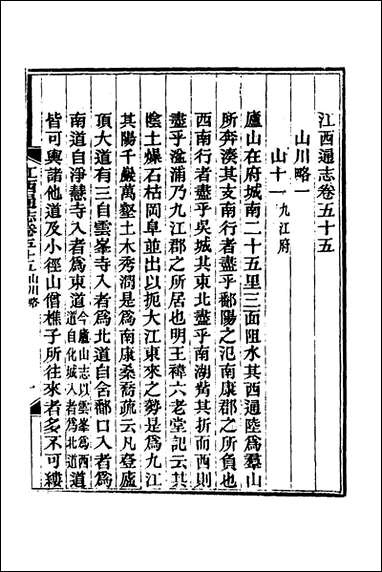 江西通志卷五十五
山川略一
山十一 九江府
廬山在府城南二十五里三面阻水其西通陸爲羣山
所奔湊其支南行者盡乎鄱陽之氾南康郡之所負也
西南行者盡乎吳城其東北盡乎南湖觜其折而西則
盡乎湓浦乃九江郡之所居也明王禕六老堂記云其
陰土燥石枯岡阜並出以扼大江東來之勢是爲九江
其陽千巖萬壑土木秀潤是爲南康桑喬疏云凡登廬
頂大道有三自雲峯寺入者爲北道自含鄱口入者爲
南道自淨慧寺入者爲東道 今廬山志以雲峯爲西道自化城入者爲北道
皆可輿諸他道及小徑山僧樵子所往來者多不可縷
江西通志卷五十五山川略 一